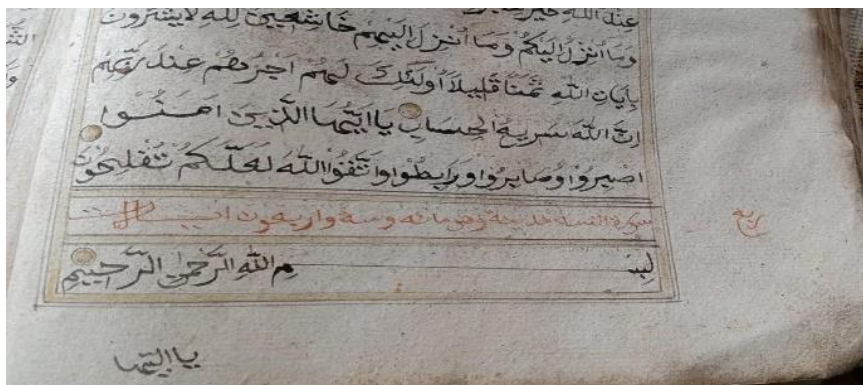 عِنْدَ اللَّهِ خَيْرٌ
وَمَا أُنْزِلَ إِلَيْكُمْ وَمَا أُنْزِلَ إِلَيْهِمْ خَاشِعِينَ لِلَّهِ لَا يَشْتَرُونَ
بِآيَاتِ اللَّهِ ثَمَنًا قَلِيلًا أُولَئِكَ لَهُمْ أَجْرُهُمْ عِنْدَ رَبِّهِمْ
إِنَّ اللَّهَ سَرِيعُ الْحِسَابِ يَا أَيُّهَا الَّذِينَ آمَنُوا
اصْبِرُوا وَصَابِرُوا وَرَابِطُوا وَاتَّقُوا اللَّهَ لَعَلَّكُمْ تُفْلِحُونَ
سورة النساء وهي مائة وستة وأربعون
ربع
بِسْمِ اللَّهِ الرَّحْمَنِ الرَّحِيمِ
يا أيها